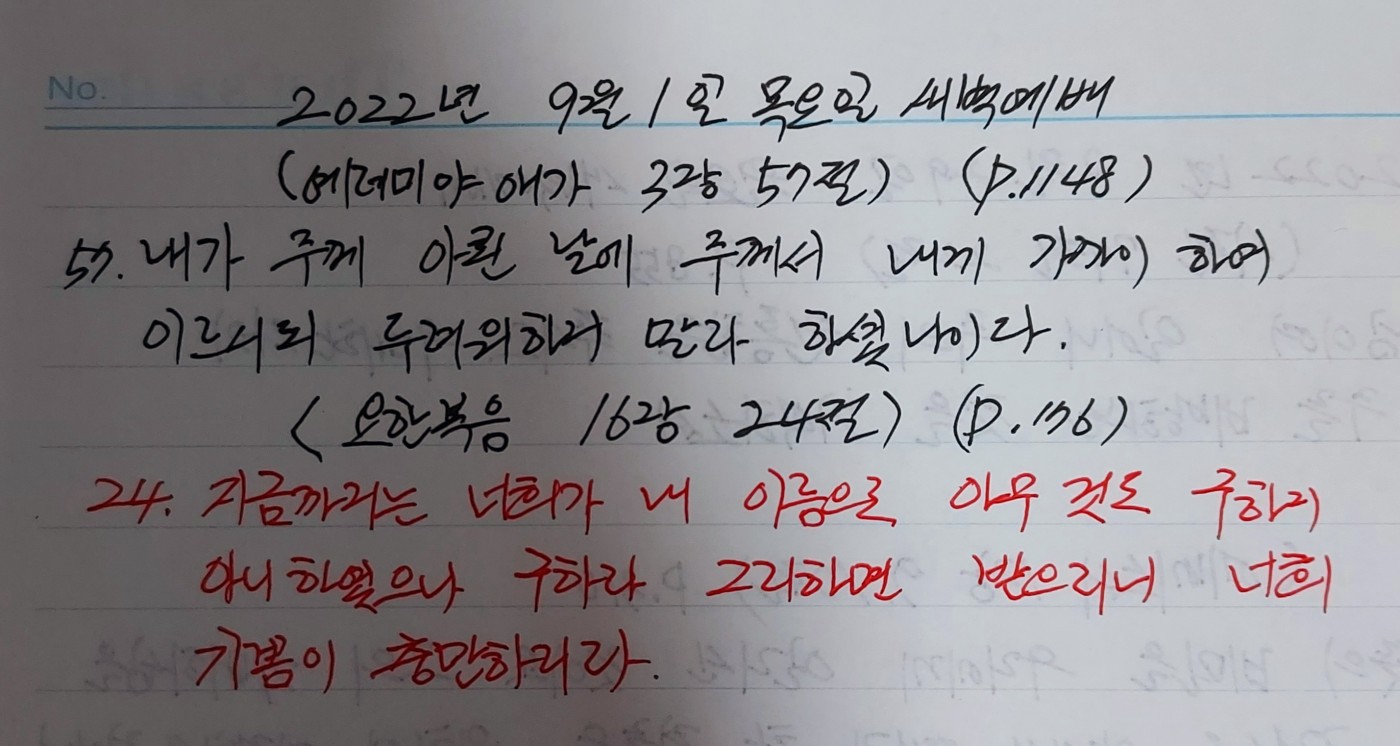 No.
2022년 9월 1일 목요일 새벽예배
(예레미야 애가 3장 57절) (P.1148)
57. 내가 주께 아뢴 날에 주께서 내게 가까이 하여
이르시되 두려워하지 말라 하셨나이다.
(요한복음 16장 24절) (P.176)
24. 지금까지는 너희가 내 이름으로 아무 것도 구하지
아니하였으나 구하라 그리하면 받으리니 너희
기쁨이 충만하리라.